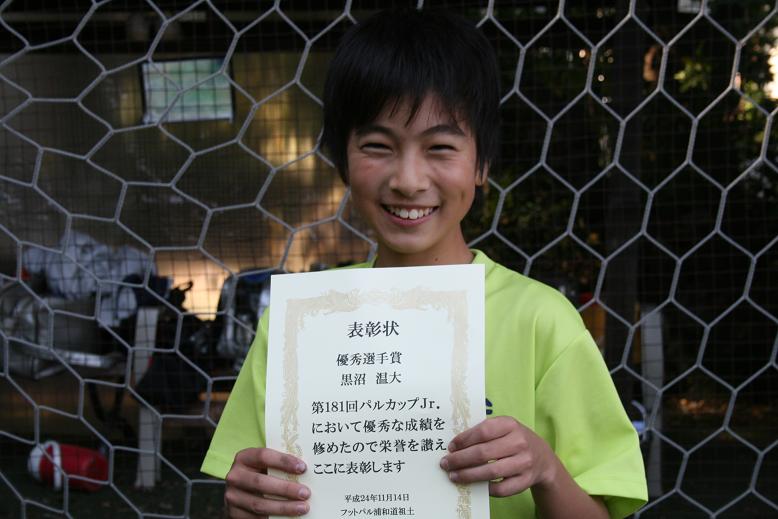 表彰状
優秀選手賞
黒沼 温大
第181回パルカップJr.
において優秀な成績を
修めたので栄誉を讃え
ここに表彰します
平成24年11月14日
フットパル浦和道祖土